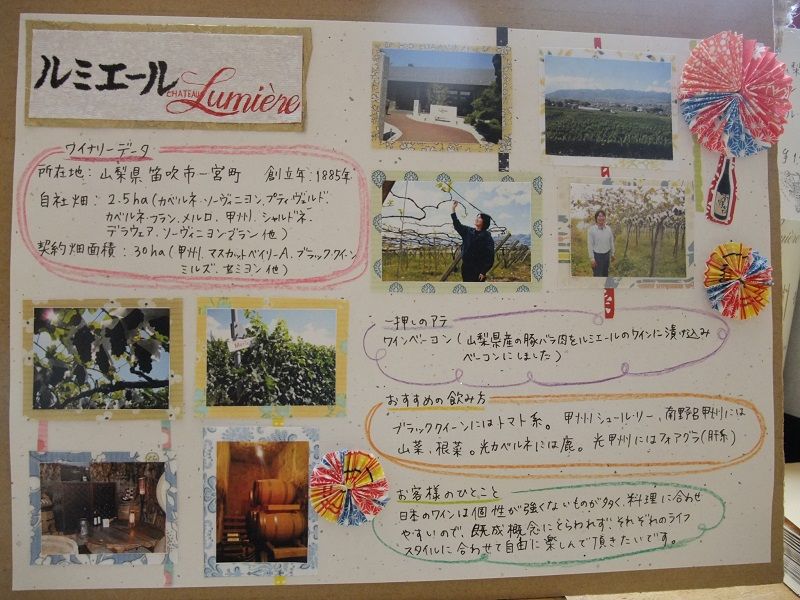 ルミエール
CHATEAU Lumière
ワイナリーデータ
所在地： 山梨県笛吹市一宮町　創立年：1885年
自社畑： 2.5ha（カベルネ・ソーヴィニヨン、プティヴェルド、
カベルネ・フラン、メルロ、甲州、シャルドネ、
デラウェア、ソーヴィニヨンブラン 他）
契約畑面積：30ha（甲州、マスカットベイリーA、ブラック・クイーン
ミルズ、セミヨン 他）
一押しのアテ
ワインベーコン（山梨県産の豚バラ肉をルミエールのワインに漬け込み
ベーコンにしました）
おすすめの飲み方
ブラッククイーンにはトマト系。　甲州シュール・リー、南野呂甲州には
山菜、根菜。光カベルネには鹿。　光甲州にはフォアグラ（肝系）
お客様のひとこと
日本のワインは個性が強くないものが多く、料理に合わせ
やすいので、既成概念にとらわれず、それぞれのライフ
スタイルに合わせて自由に楽しんで頂きたいです。